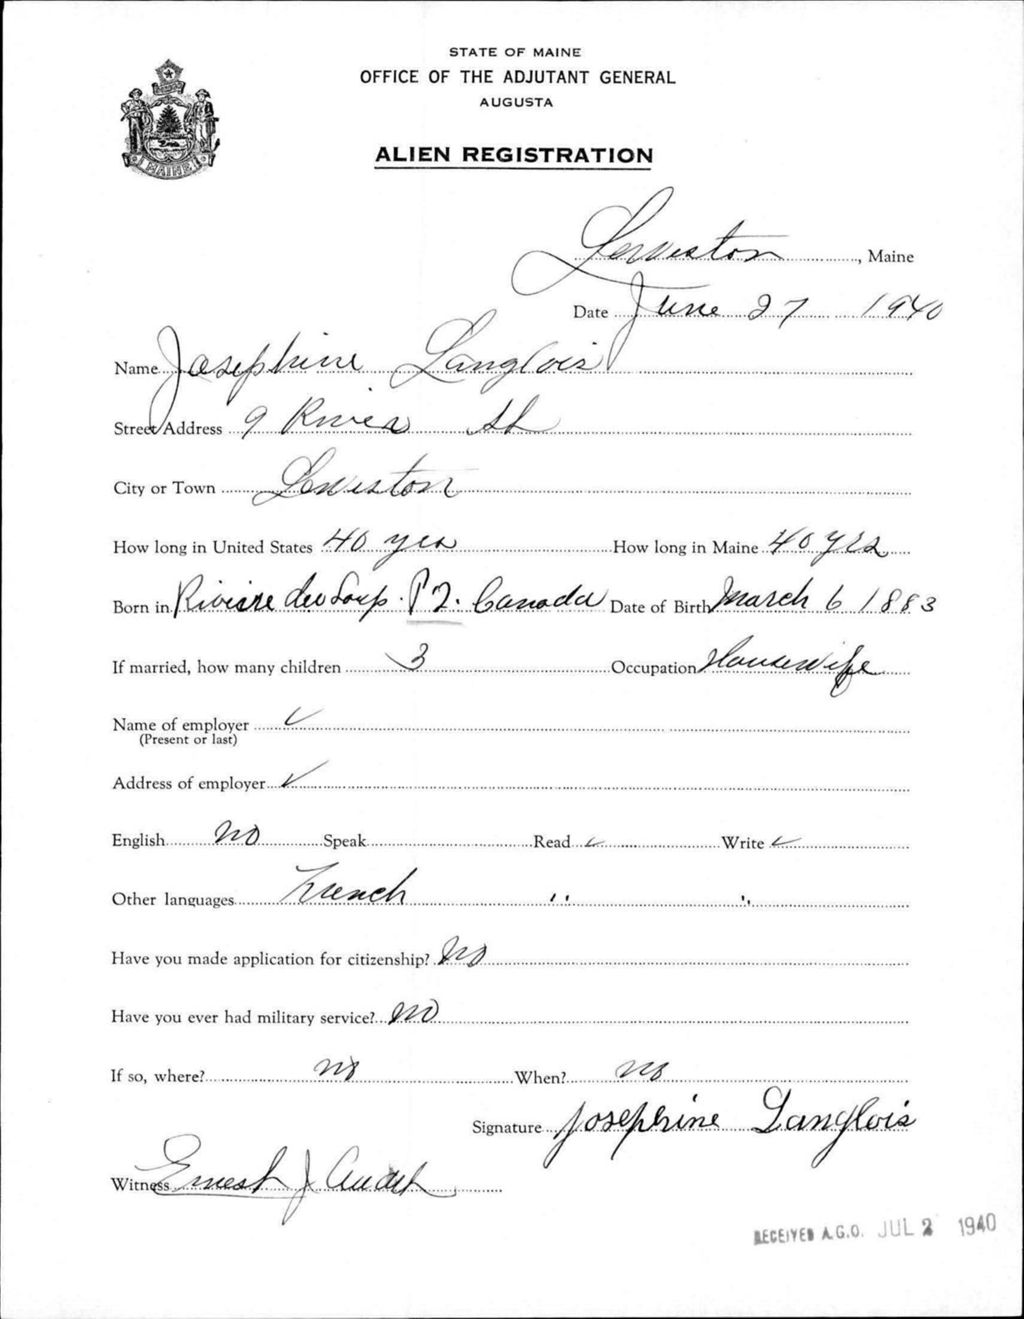 STATE OF MAINE
OFFICE OF THE ADJUTANT GENERAL
AUGUSTA
MAINE
ALIEN REGISTRATION
Lewiston, Maine
Date June 27 1940
Name Josephine Langlois
Street Address 9 River St
City or Town Lewiston
How long in United States 40 yrs How long in Maine 40 yrs
Born in Riviere du Loup. P2. Canada Date of Birth March 6 1883
If married, how many children 3 Occupation Housewife
Name of employer ✓
(Present or last)
Address of employer ✓
English No Speak Read ✓ Write ✓
Other languages French " "
Have you made application for citizenship? No
Have you ever had military service? No
If so, where? no When? no
Signature Josephine Langlois
Witness Ernest J Audet
RECEIVED A.G.O. JUL 2 1940